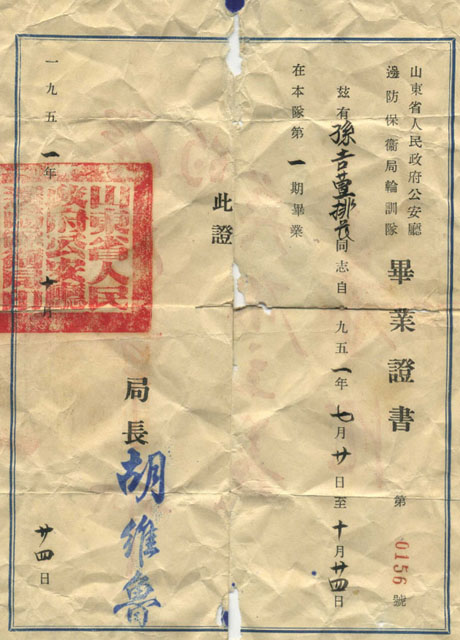 山東省人民政府公安廳
邊防保衞局輪訓隊
畢業證書
第0156號
茲有孫吉堂排長同志自一九五一年七月廿日至十月廿四日
在本隊第一期畢業
此證
局長胡維魯
一九五一年十月廿四日
山東省人民
政府公安廳